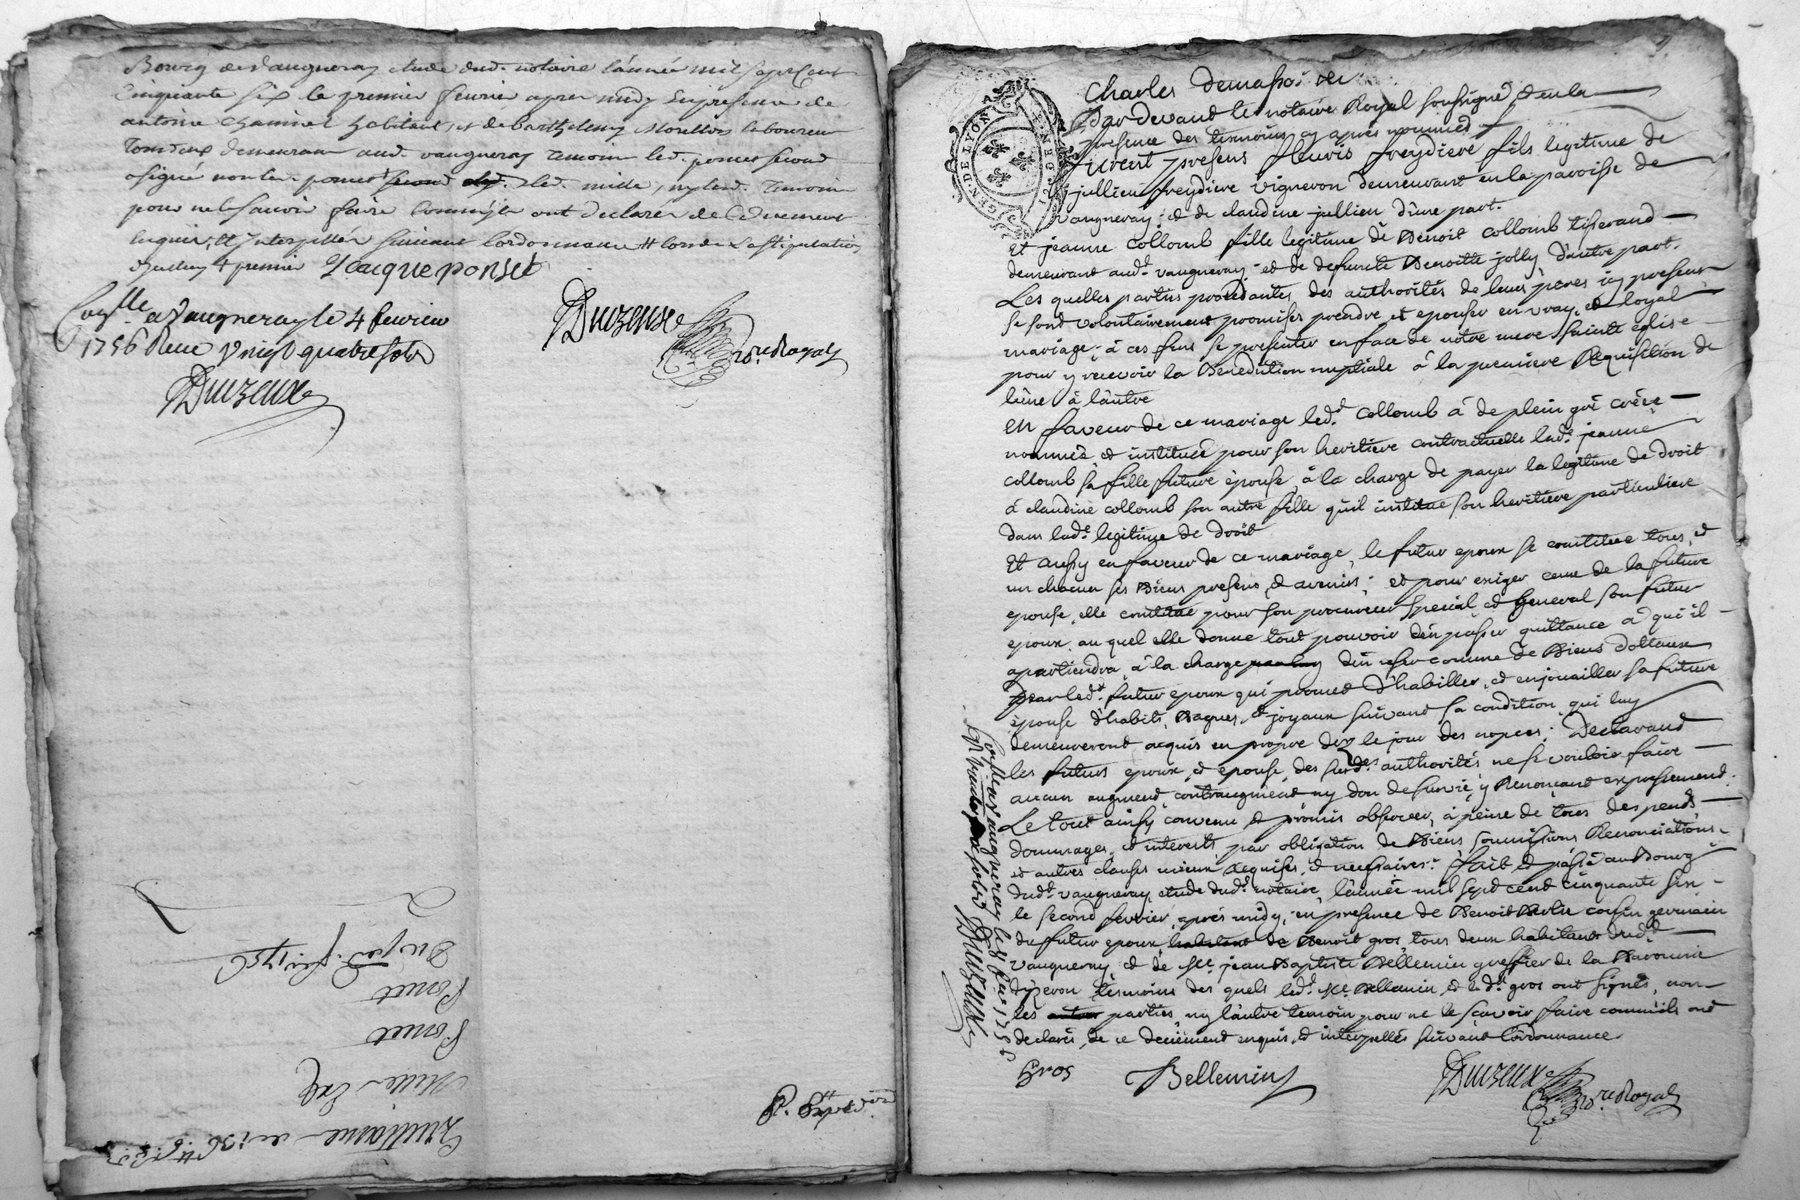 Bourg de Vaugneray etude dud. notaire l'année mil sept Cent
Cinquante six le premier fevrier apres midy En presence de
antoine Chaminet habitant, et de barthelemy laboureur
Tous deux demeurans aud. vaugneray Temoins led. ponset second
a signé non led. ponset led. mille, ny lesd. Temoins
pour ne le scavoir faire Comme ils ont declarés de Ce duement
Enquis, Et Interpellés suivant l'ordonnance
premier Jacque ponset
Con.lle a Vaugneray le 4 fevrier
1756 Receu Vingt quatre sols
Duizeux
Duizeux no.re Royal
P.r Exped.on
Quittance de 136 #
Mille
Ponset
Ponset
Du p.er fev. 1756
GEN. DE LYON
Charles
Pardevant le notaire Royal soussigné & en la
presence des temoins cy aprés nommés
furent presens fleuris freydiere fils legitime de
jullien freydiere vigneron demeurant en la paroisse de
vaugneray; & de claudine jullien d'une part.
Et jeanne Collomb fille legitime de Benoit Collomb tisserand
demeurant aud.t vaugneray; et de defuncte Benoitte jolly d'autre part.
Les quelles parties procedantes des authorités de leurs péres icy presens
se sont volontairement promises prendre et epouser en vray, et loyal
mariage; à ces fins se presenter en face de nôtre mere sainte église
pour y recevoir la Benediction nuptiale à la premiere Requisition de
lune à lautre
En faveur de ce mariage led.t Collomb à de plein gré créée
nommée et instituée pour son heritiere contractuelle lad.e jeanne
collomb sa fille future épouse, à la charge de payer la legitime de droit
à claudine collomb son autre fille quil institue son heritiere particuliere
dans lad.e legitime de droit
Et aussy en faveur de ce mariage, le futur epoux se constitue tous, et
un chacun ses Biens presens, & avenirs; et pour exiger ceux de la future
epouse, elle constitue pour son procureur special, et general son futur
epoux au quel elle donne tout pouvoir d'en passer quittance à qui il
apartiendra, à la charge d'en user comme de Biens dottaux
par led.t futur epoux qui promet d'habiller, et enjouailler sa future
épouse d'habits, Bagues, & joyaux suivant sa condition, qui luy
demeureront acquis en propre dez le jour des nopces; Declarans
les futurs epoux, et epouse, des susd.es authorités ne se vouloir faire
aucun augment, contraugment ny don de survie, y Renonçant expressement.
Le tout ainsy convenu & promis observer, à peine de tous despends
dommages, & interests par obligation de Biens soumissions Renonciations
et autres clauses mieux Requises, & necessaires. fait & passé au Bourg
dud.t vaugneray, etude dud.t notaire, l'année mil sept cent cinquante six
le second fevrier, aprés midy, en presence de Benoit cousin germain
du futur epoux habitant de Benoit gros, tous deux habitants dud.t
vaugneray, et de M.e jean Baptiste Bellemin greffier de la Baronnie
d'yzeron temoins des quels led.t M.e Bellemin, & led.t gros ont signés, non
les parties, ny lautre temoin pour ne le scavoir faire comme ils ont
declarés, de ce deuement enquis, & interpellés suivant l'ordonnance
Gros Bellemin Duizeux no.re Royal
Con.lle a vaugneray le 4 fev. 1756
Duizeux